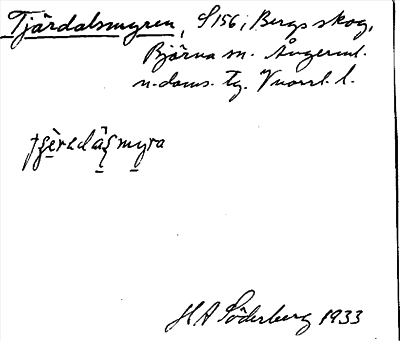 Tjärdalsmyren, S156; Bergs skog,
Björna sn. Ångerml.
n. doms. Tg. Vnorrl. l.
H A Söderberg 1933